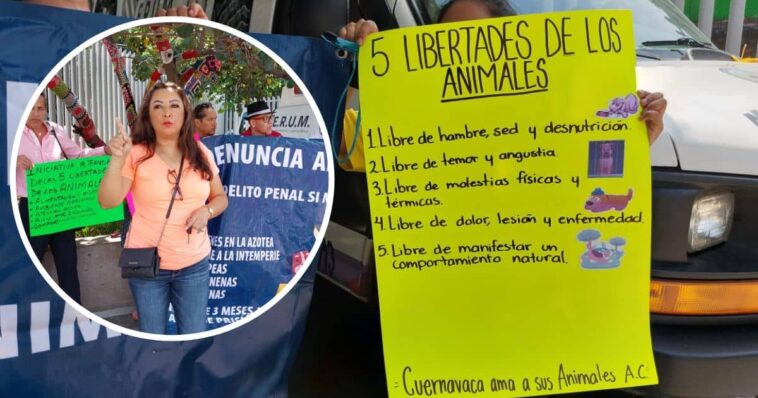 5 LIBERTADES DE LOS
ANIMALES
1. Libre de hambre, sed y desnutrición.
2. Libre de temor y angustia.
3. Libre de molestias físicas y
térmicas.
4. Libre de dolor, lesión y enfermedad.
5. Libre de manifestar un
comportamiento natural.
= Cuernavaca ama a sus Animales A.C.
INICIATIVA A FAVOR
DE LAS 5 LIBERTADES
DE LOS ANIMALES
E.R.U.M.
DENUNCIA A
DELITO PENAL SI
EN LA AZOTEA
A LA INTEMPERIE
3 MESES
NIM